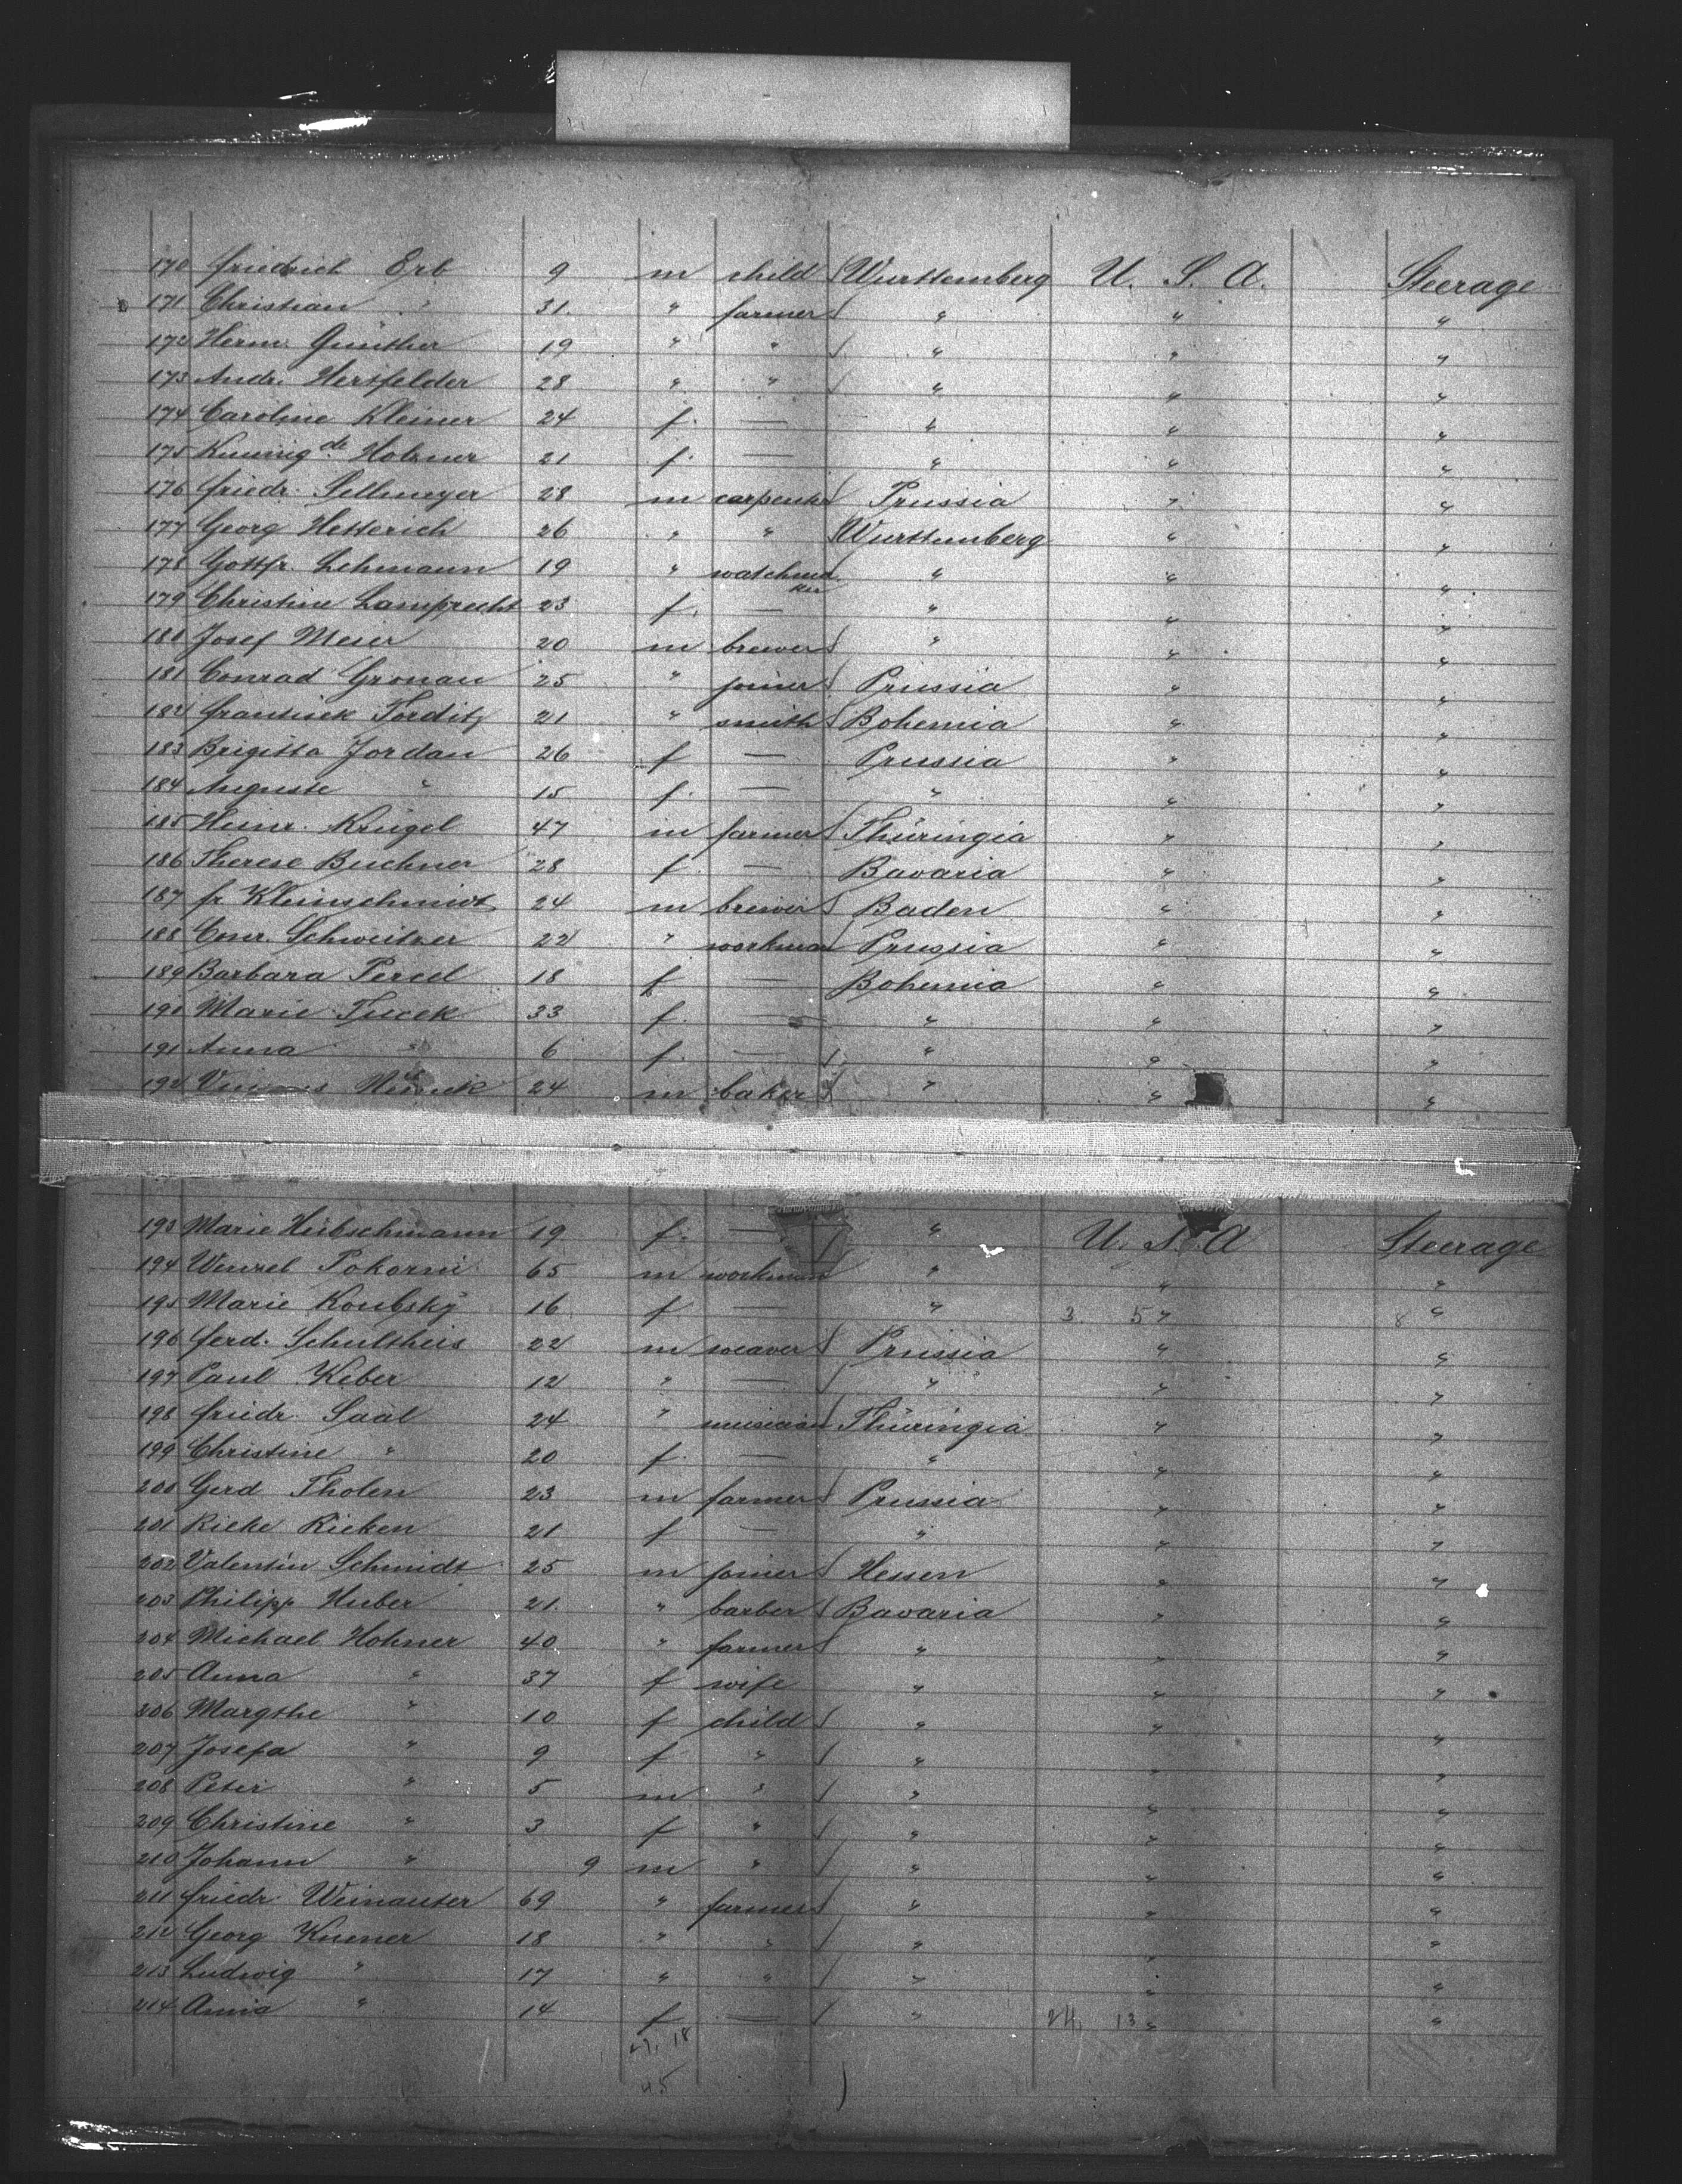 170 Friedrich Erb 9 m child Wurttemberg U. S. A. Steerage
171 Christian " 31. " farmer " " "
172 Herm. Günther 19 " " " " "
173 Andr. Hertfelder 28 " " " " "
174 Caroline Kleiner 24 f. — " " "
175 Kunnigde Holzner 21 f. — " " "
176 Friedr. Sellmeyer 28 m carpenter Prussia " "
177 Georg Hetterich 26 " " Wurttemberg " "
178 Gottfr. Lehmann 19 " watchmaker " " "
179 Christine Lamprecht 23 f. — " " "
180 Josef Meier 20 m brewer " " "
181 Conrad Gronau 25 " joiner Prussia " "
182 Frantisek Torditz 21 " smith Bohemia " "
183 Brigitta Jordan 26 f — Prussia " "
184 Auguste " 15 f. — " " "
185 Heinr. Krügel 47 m farmer Thüringia " "
186 Therese Buchner 28 f — Bavaria " "
187 Fr Kleinschmidt 24 m brewer Baden " "
188 Conr. Schweitzer 22 " workman Prussia " "
189 Barbara 18 f — Bohemia " "
190 Marie 33 f. — " " "
191 Anna " 6 f. — " " "
192 24 m baker " " "
193 Marie Hübschmann 19 f. — " U. S. A Steerage
194 Wenzel Pokorni 65 m workman " " "
195 Marie Koubsky 16 f — " 3 5 " 8 "
196 Ferd. Schultheis 22 m weaver Prussia " "
197 Paul Keber 12 " — " " "
198 Friedr. Saal 24 " musician Thüringia " "
199 Christine " 20 f. — " " "
200 Gerd Tholen 23 m farmer Prussia " "
201 Rieke Rieken 21 f — " " "
202 Valentin Schmidt 25 m joiner Hessen " "
203 Philipp Huber 21. " barber Bavaria " "
204 Michael Hohner 40 " farmer " " "
205 Anna " 37 f wife " " "
206 Margthe " 10 f child " " "
207 Josefa " 9 f " " " "
208 Peter " 5 m " " " "
209 Christine " 3 f " " " "
210 Johann " 9 m " " " "
211 Friedr. Weinauter 69 " farmer " " "
212 Georg Kuener 18 " " " " "
213 Ludwig " 17 " " " " "
214 Anna " 14 f — " 24 13 " "
27, 18
45